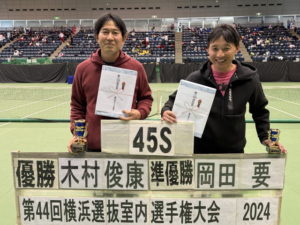 45S
優勝 木村俊康 準優勝 岡田 要
第44回横浜選抜室内選手権大会 2024